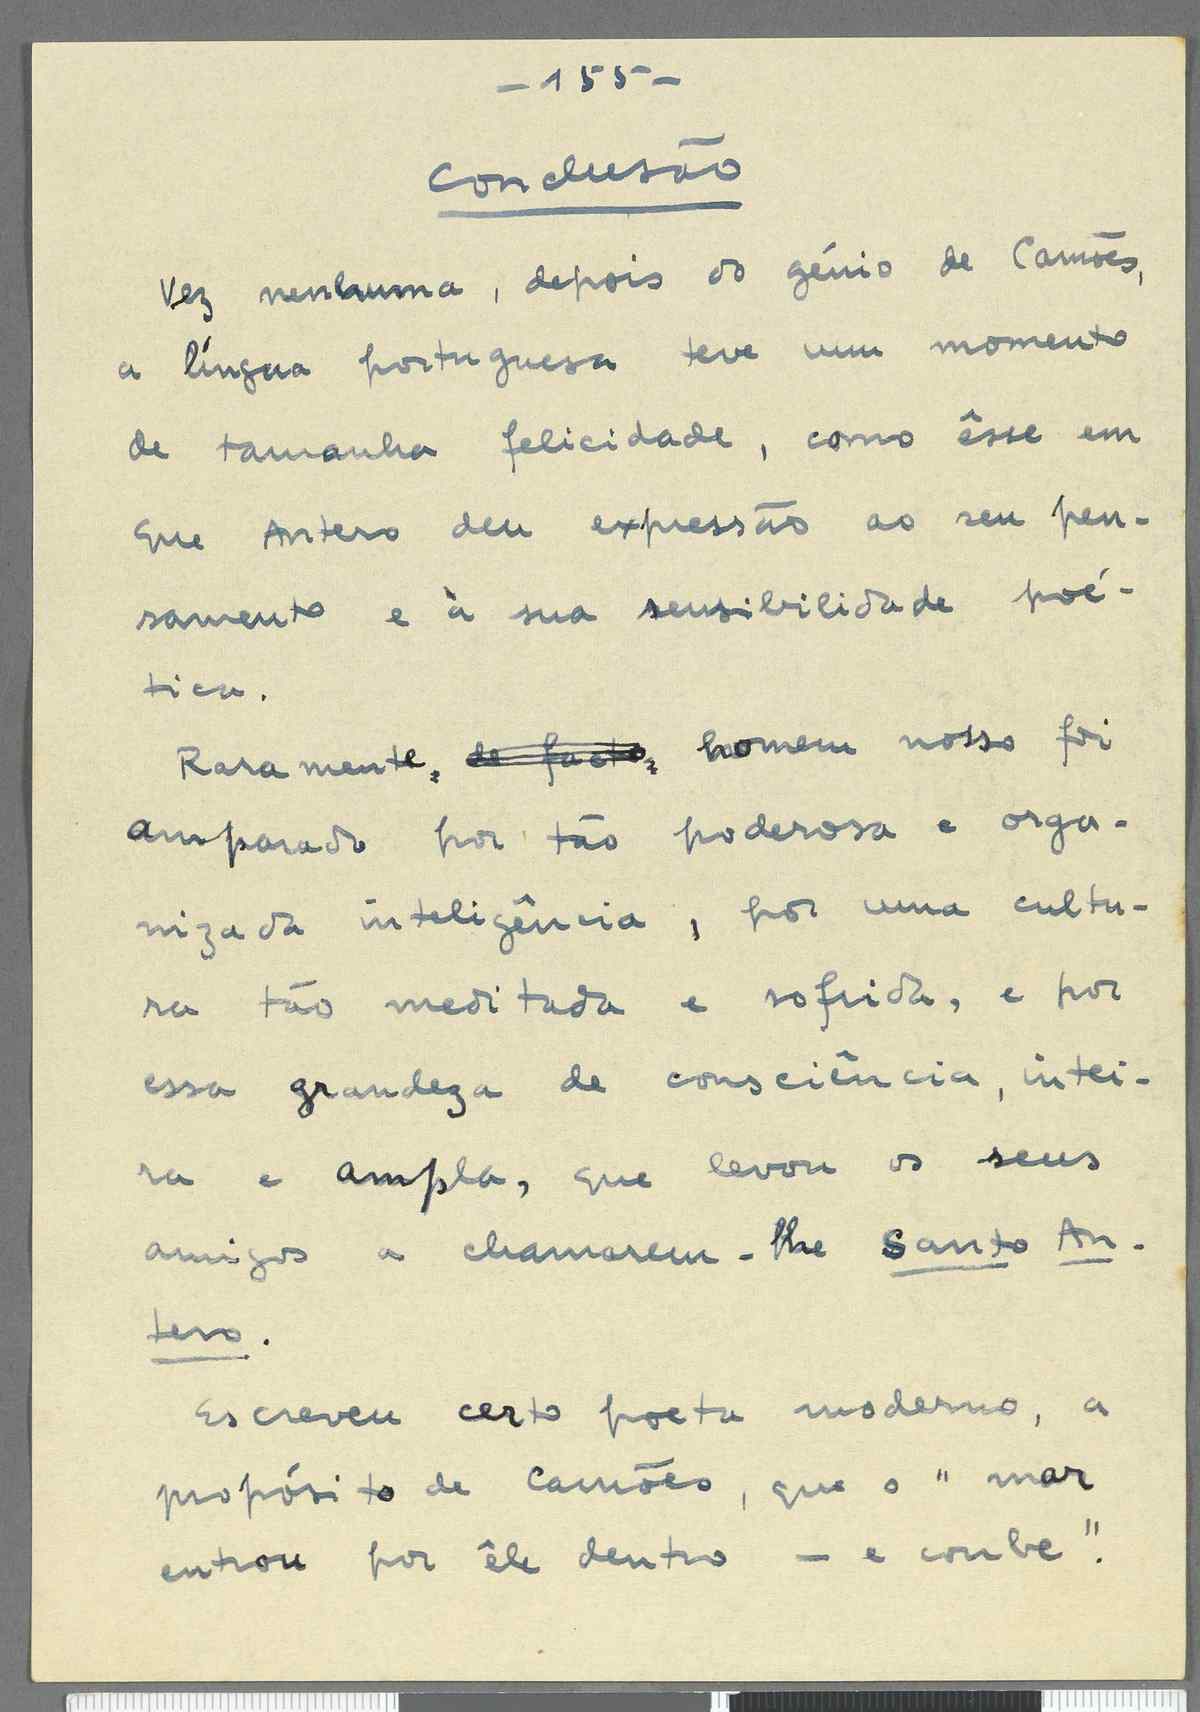 - 155 -
Conclusão
Vez nenhuma, depois do génio de Camões,
a língua portuguesa teve um momento
de tamanha felicidade, como êsse em
que Antero deu expressão ao seu pen-
samento e à sua sensibilidade poé-
tica.
Raramente, de facto, homem nosso foi
amparado por tão poderosa e orga-
nizada inteligência, por uma cultu-
ra tão meditada e sofrida, e por
essa grandeza de consciência, intei-
ra e ampla, que levou os seus
amigos a chamarem-lhe Santo An-
tero.
Escreveu certo poeta moderno, a
propósito de Camões, que o "mar
entrou por êle dentro — e coube".